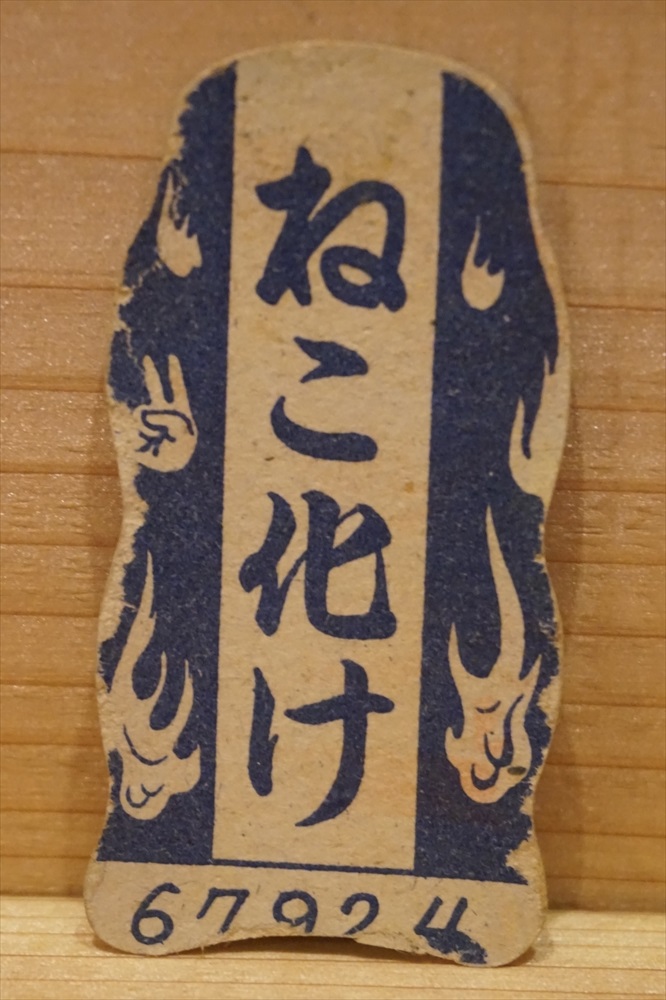 ねこ化け
67924